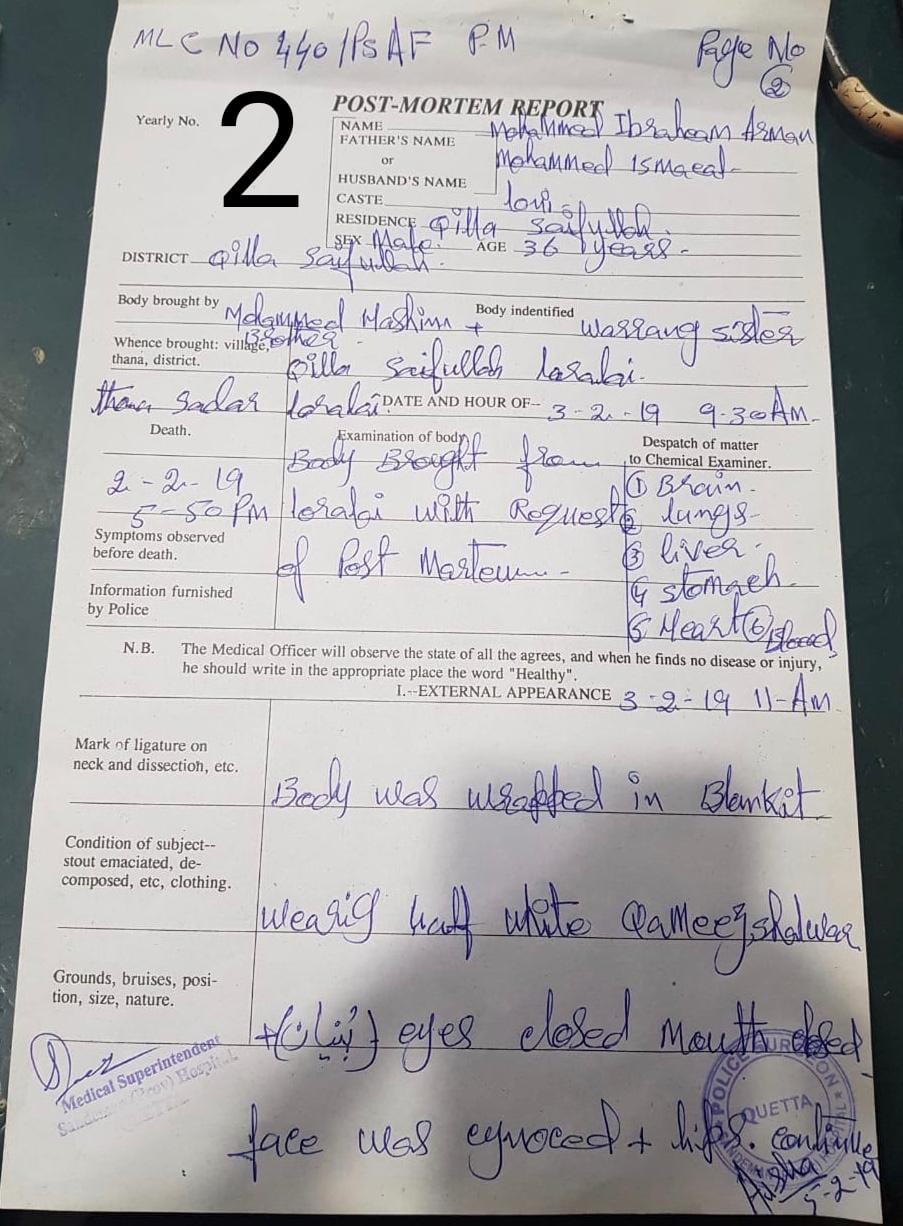 MLC No 440/PsAF P.M
Page No
②
2
Yearly No.
POST-MORTEM REPORT
NAME Mohammed Ibraheem Arman
FATHER'S NAME
or Mohammed Ismaeal
HUSBAND'S NAME
CASTE loni
RESIDENCE Qilla Saifullah.
SEX Male. AGE 36 years -
DISTRICT Qilla Saifullah.
Body brought by Mohammed Hashim + Body indentified warrang sister
Brother
Whence brought: village, Qilla Saifullah loralai.
thana, district.
thana Sadar loralai DATE AND HOUR OF-- 3-2-19 9-30 AM.
Death.
Examination of body
Despatch of matter
to Chemical Examiner.
2-2-19
5-50 PM
Body Brought from
loralai with Request
of Post Marteum -
① Brain.
② lungs-
③ liver.
④ stomach.
⑤ Heart ⑥ Blood
Symptoms observed
before death.
Information furnished
by Police
N.B. The Medical Officer will observe the state of all the agrees, and when he finds no disease or injury,
he should write in the appropriate place the word "Healthy".
I.--EXTERNAL APPEARANCE 3-2-19 11-AM.
Mark of ligature on
neck and dissection, etc.
Body was wrapped in Blankit
Condition of subject--
stout emaciated, de-
composed, etc, clothing.
wearig half white Qameez, shalwar
Grounds, bruises, posi-
tion, size, nature.
+(بنیان) eyes closed Mouth closed
face was cynoced + lips. continue
Medical Superintendent
Sandeman (Prov) Hospital
POLICE SURGEON
QUETTA
5-2-19